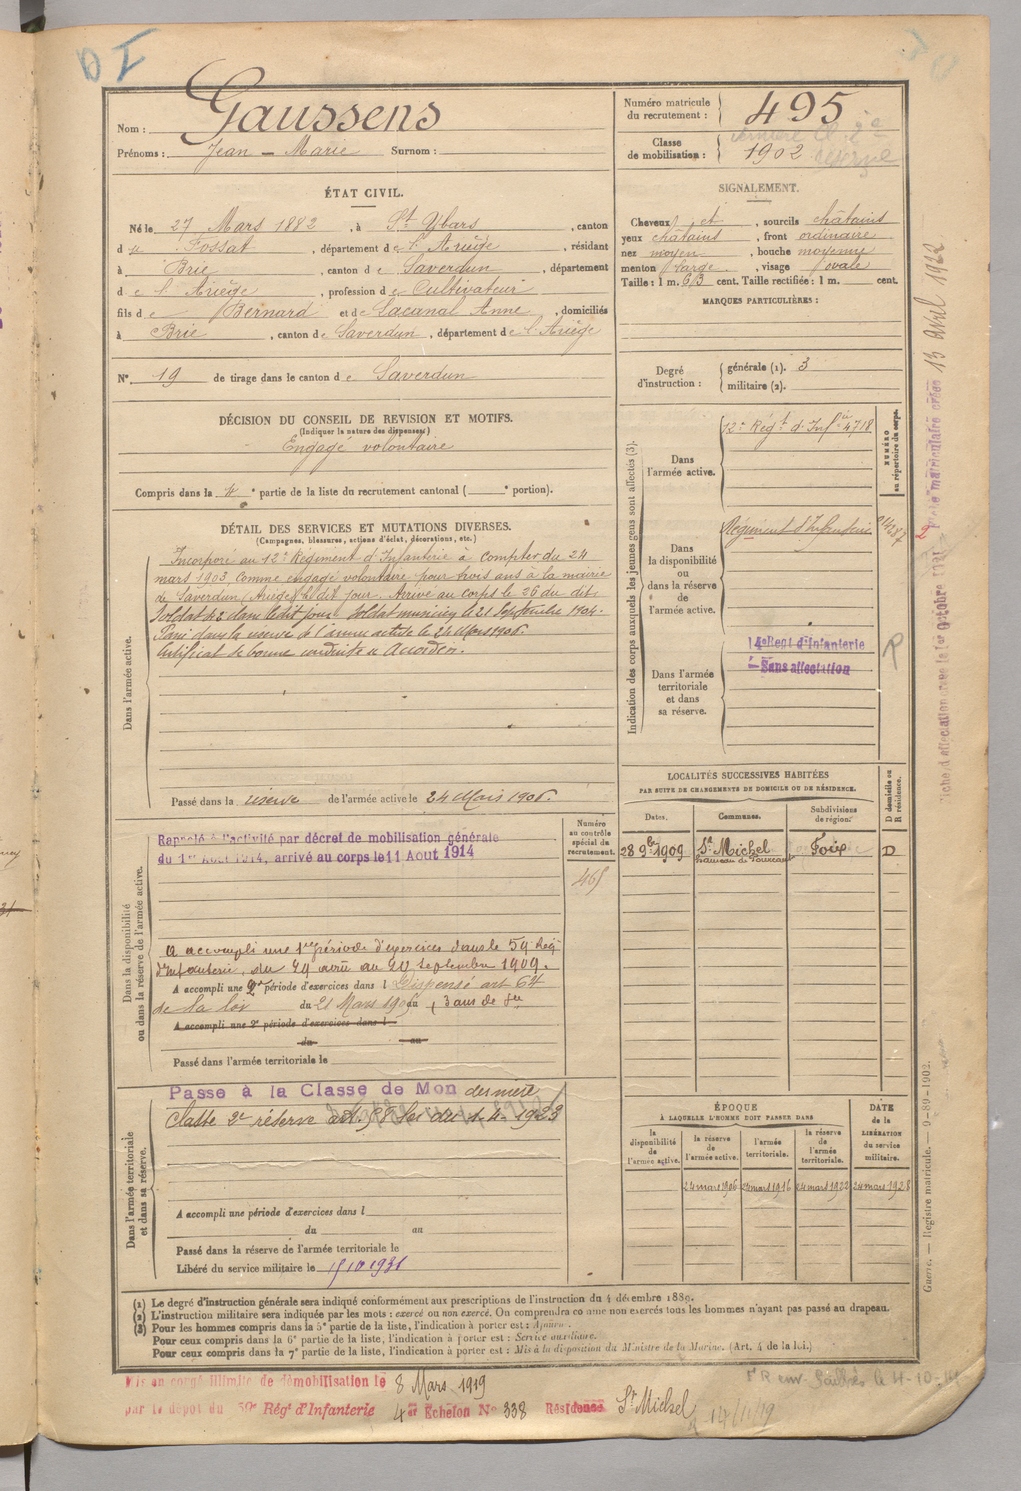 D I
Nom : Gaussens
Prénoms : Jean - Marie Surnom :
Numéro matricule du recrutement : 495
Classe de mobilisation : 1902
ÉTAT CIVIL.
Né le 27 Mars 1882, à St Ybars, canton
du Fossat, département de l'Ariège, résidant
à Brie, canton de Saverdun, département
de l'Ariège, profession de Cultivateur
fils de Bernard et de Lacanal Anne, domiciliés
à Brie, canton de Saverdun, département de l'Ariège
N° 19 de tirage dans le canton de Saverdun
SIGNALEMENT.
Cheveux et, sourcils châtains
yeux châtains, front ordinaire
nez moyen, bouche moyenne
menton large, visage ovale
Taille : 1 m. 63 cent. Taille rectifiée : 1 m. cent.
MARQUES PARTICULIÈRES :
Degré d'instruction : générale (1). 3
militaire (2).
DÉCISION DU CONSEIL DE REVISION ET MOTIFS.
(Indiquer la nature des dispenses)
Engagé volontaire
Compris dans la 4e partie de la liste du recrutement cantonal ( e portion).
DÉTAIL DES SERVICES ET MUTATIONS DIVERSES.
(Campagnes, blessures, actions d'éclat, décorations, etc.)
Dans l'armée active.
Incorporé au 12e Régiment d'Infanterie à compter du 24
mars 1903, comme engagé volontaire pour trois ans à la mairie
de Saverdun (Ariège) le dit jour. Arrivé au corps le 26 du dit.
Soldat de 2e dans le dit jour. Soldat musicien le 21 Septembre 1904.
Passé dans la réserve de l'armée active le 24 Mars 1906.
Certificat de bonne conduite Accordé.
Passé dans la réserve de l'armée active le 24 Mars 1906.
Indication des corps auxquels les jeunes gens sont affectés (3).
NUMÉRO au répertoire du corps.
Dans l'armée active.
12e Régt d'Infie 4718
Dans la disponibilité ou dans la réserve de l'armée active.
Régiment d'Infanterie
Dans l'armée territoriale et dans sa réserve.
14e Regt d'Infanterie
Sans affectation
LOCALITÉS SUCCESSIVES HABITÉES
PAR SUITE DE CHANGEMENTS DE DOMICILE OU DE RÉSIDENCE.
Dates. Communes. Subdivisions de région. D domicile ou R résidence.
28 9bre 1909 St Michel Foix D
Dans la disponibilité ou dans la réserve de l'armée active.
Numéro au contrôle spécial du recrutement.
465
Rappelé à l'activité par décret de mobilisation générale
du 1er Août 1914, arrivé au corps le 11 Aout 1914
A accompli une 1re période d'exercices dans le 59 Régt
d'Infanterie, du 29 août au 20 Septembre 1909.
A accompli une 2e période d'exercices dans l Dispensé art 64
de la loi du 21 Mars 1905 au
A accompli une 2e période d'exercices dans l
du au
Passé dans l'armée territoriale le
Dans l'armée territoriale et dans sa réserve.
Passé à la Classe de Mon dernière
Classe 2e réserve art. 58 loi du 1-4-1923
A accompli une période d'exercices dans l
du au
Passé dans la réserve de l'armée territoriale le
Libéré du service militaire le 15 10 1931
ÉPOQUE
À LAQUELLE L'HOMME DOIT PASSER DANS
la disponibilité de l'armée active. la réserve de l'armée active. l'armée territoriale. la réserve de l'armée territoriale.
DATE de la LIBÉRATION du service militaire.
24 mars 1906 24 mars 1916 24 mars 1922 24 mars 1928
(1) Le degré d'instruction générale sera indiqué conformément aux prescriptions de l'instruction du 4 décembre 1889.
(2) L'instruction militaire sera indiquée par les mots : exercé ou non exercé. On comprendra comme non exercés tous les hommes n'ayant pas passé au drapeau.
(3) Pour les hommes compris dans la 5e partie de la liste, l'indication à porter est : Ajourné.
Pour ceux compris dans la 6e partie de la liste, l'indication à porter est : Service auxiliaire.
Pour ceux compris dans la 7e partie de la liste, l'indication à porter est : Mis à la disposition du Ministre de la Marine. (Art. 4 de la loi.)
Mis en congé illimité de démobilisation le 8 Mars 1919
par le dépot du 59e Régt d'Infanterie 4e Echelon N° 338 Résidence St Michel
14/11/19
Guerre. — Registre matricule. — 9-89-1902.
13 avril 1922